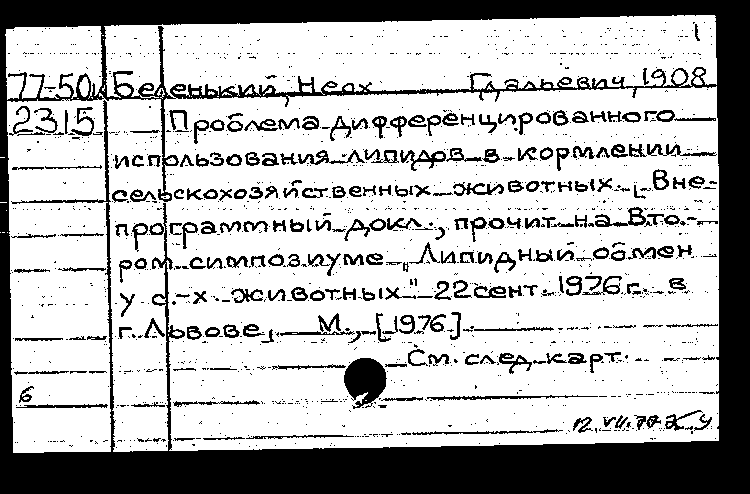 1
77-50к Беленький, Неох Гдальевич, 1908
2315 Проблема дифференцированного
использования липидов в кормлении
сельскохозяйственных животных. [Вне-
программный докл., прочит. на Вто-
ром симпозиуме „Липидный обмен
у с.-х. животных" 22 сент. 1976 г. в
г. Львове], М., [1976].
См. след. карт.
6
12.VII.77